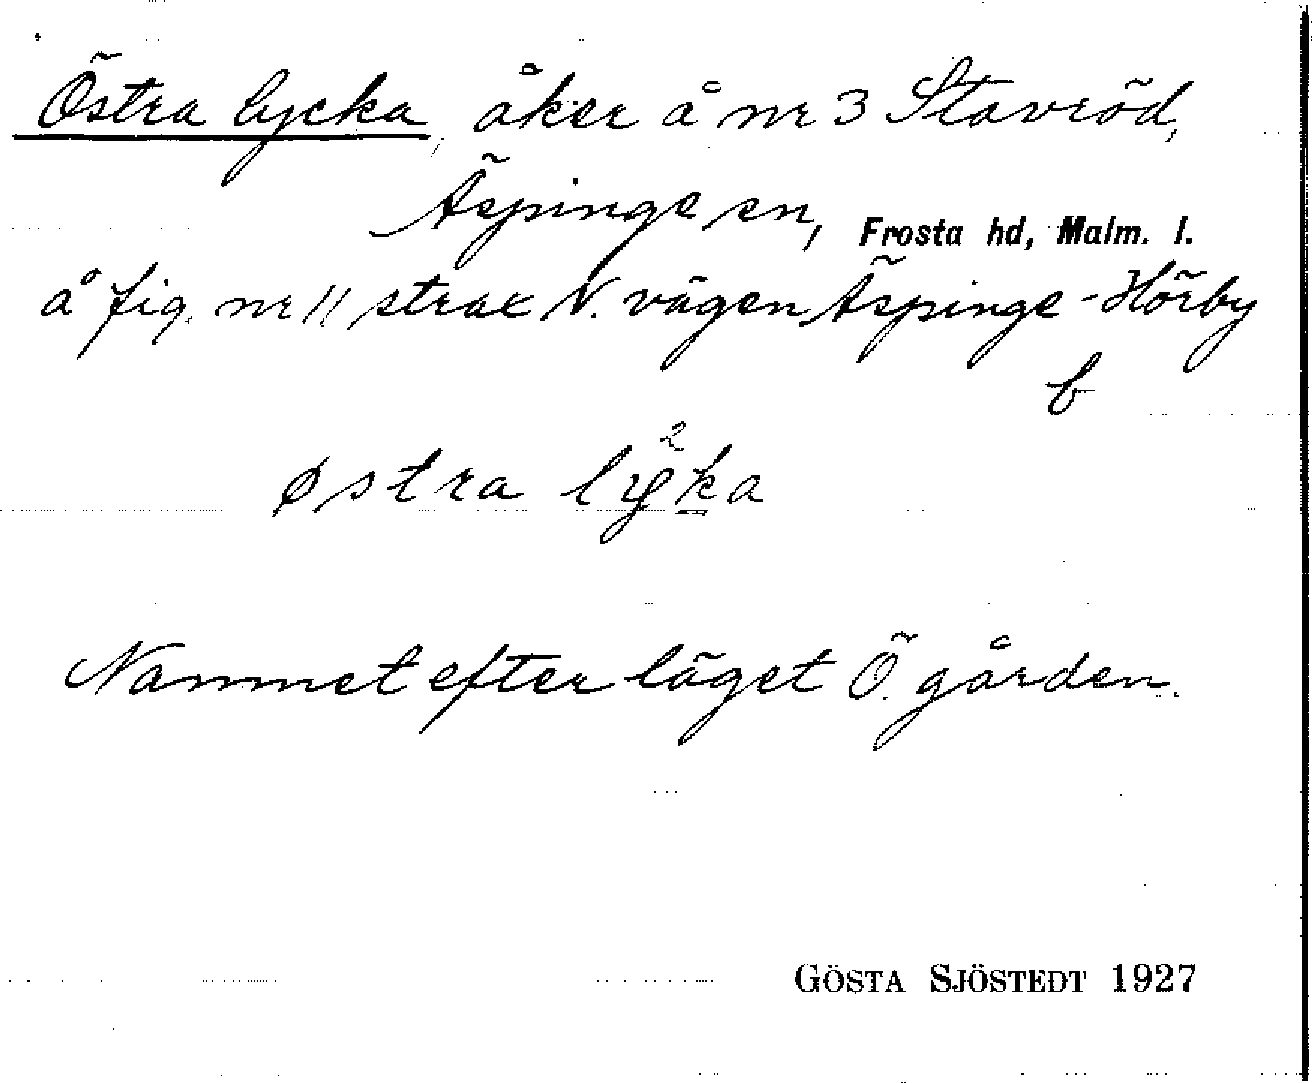 Östra lycka, åker å nr 3 Stavröd,
Äspinge sn, Frosta hd, Malm. l.
å fig. nr 11 strax N. vägen Äspinge-Hörby
b
østra lyka
Namnet efter läget Ö. gården.
GÖSTA SJÖSTEDT 1927